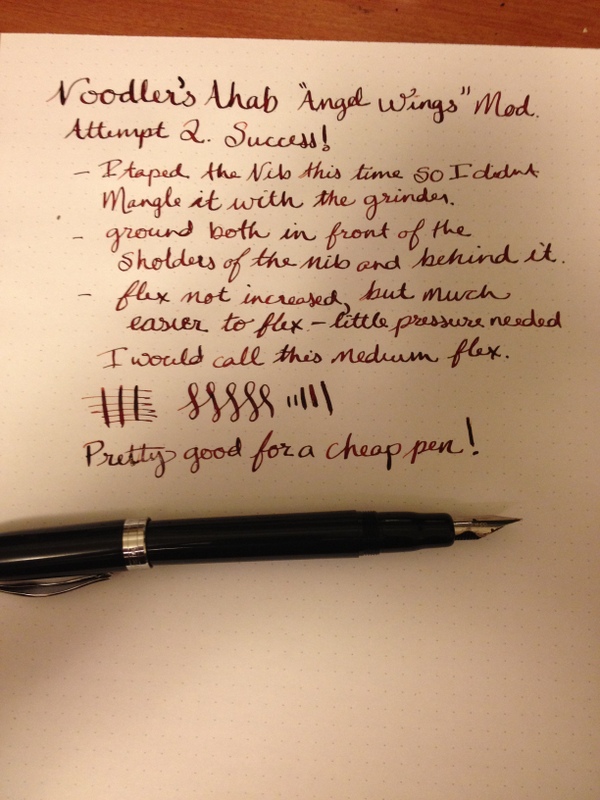 Noodler's Ahab "Angel Wings" Mod.
Attempt 2. Success!
- I taped the Nib this time so I didnt
Mangle it with the grinder.
- ground both in front of the
Sholders of the nib and behind it.
- flex not increased, but much
easier to flex - little pressure needed
I would call this medium flex.
Pretty good for a cheap pen!